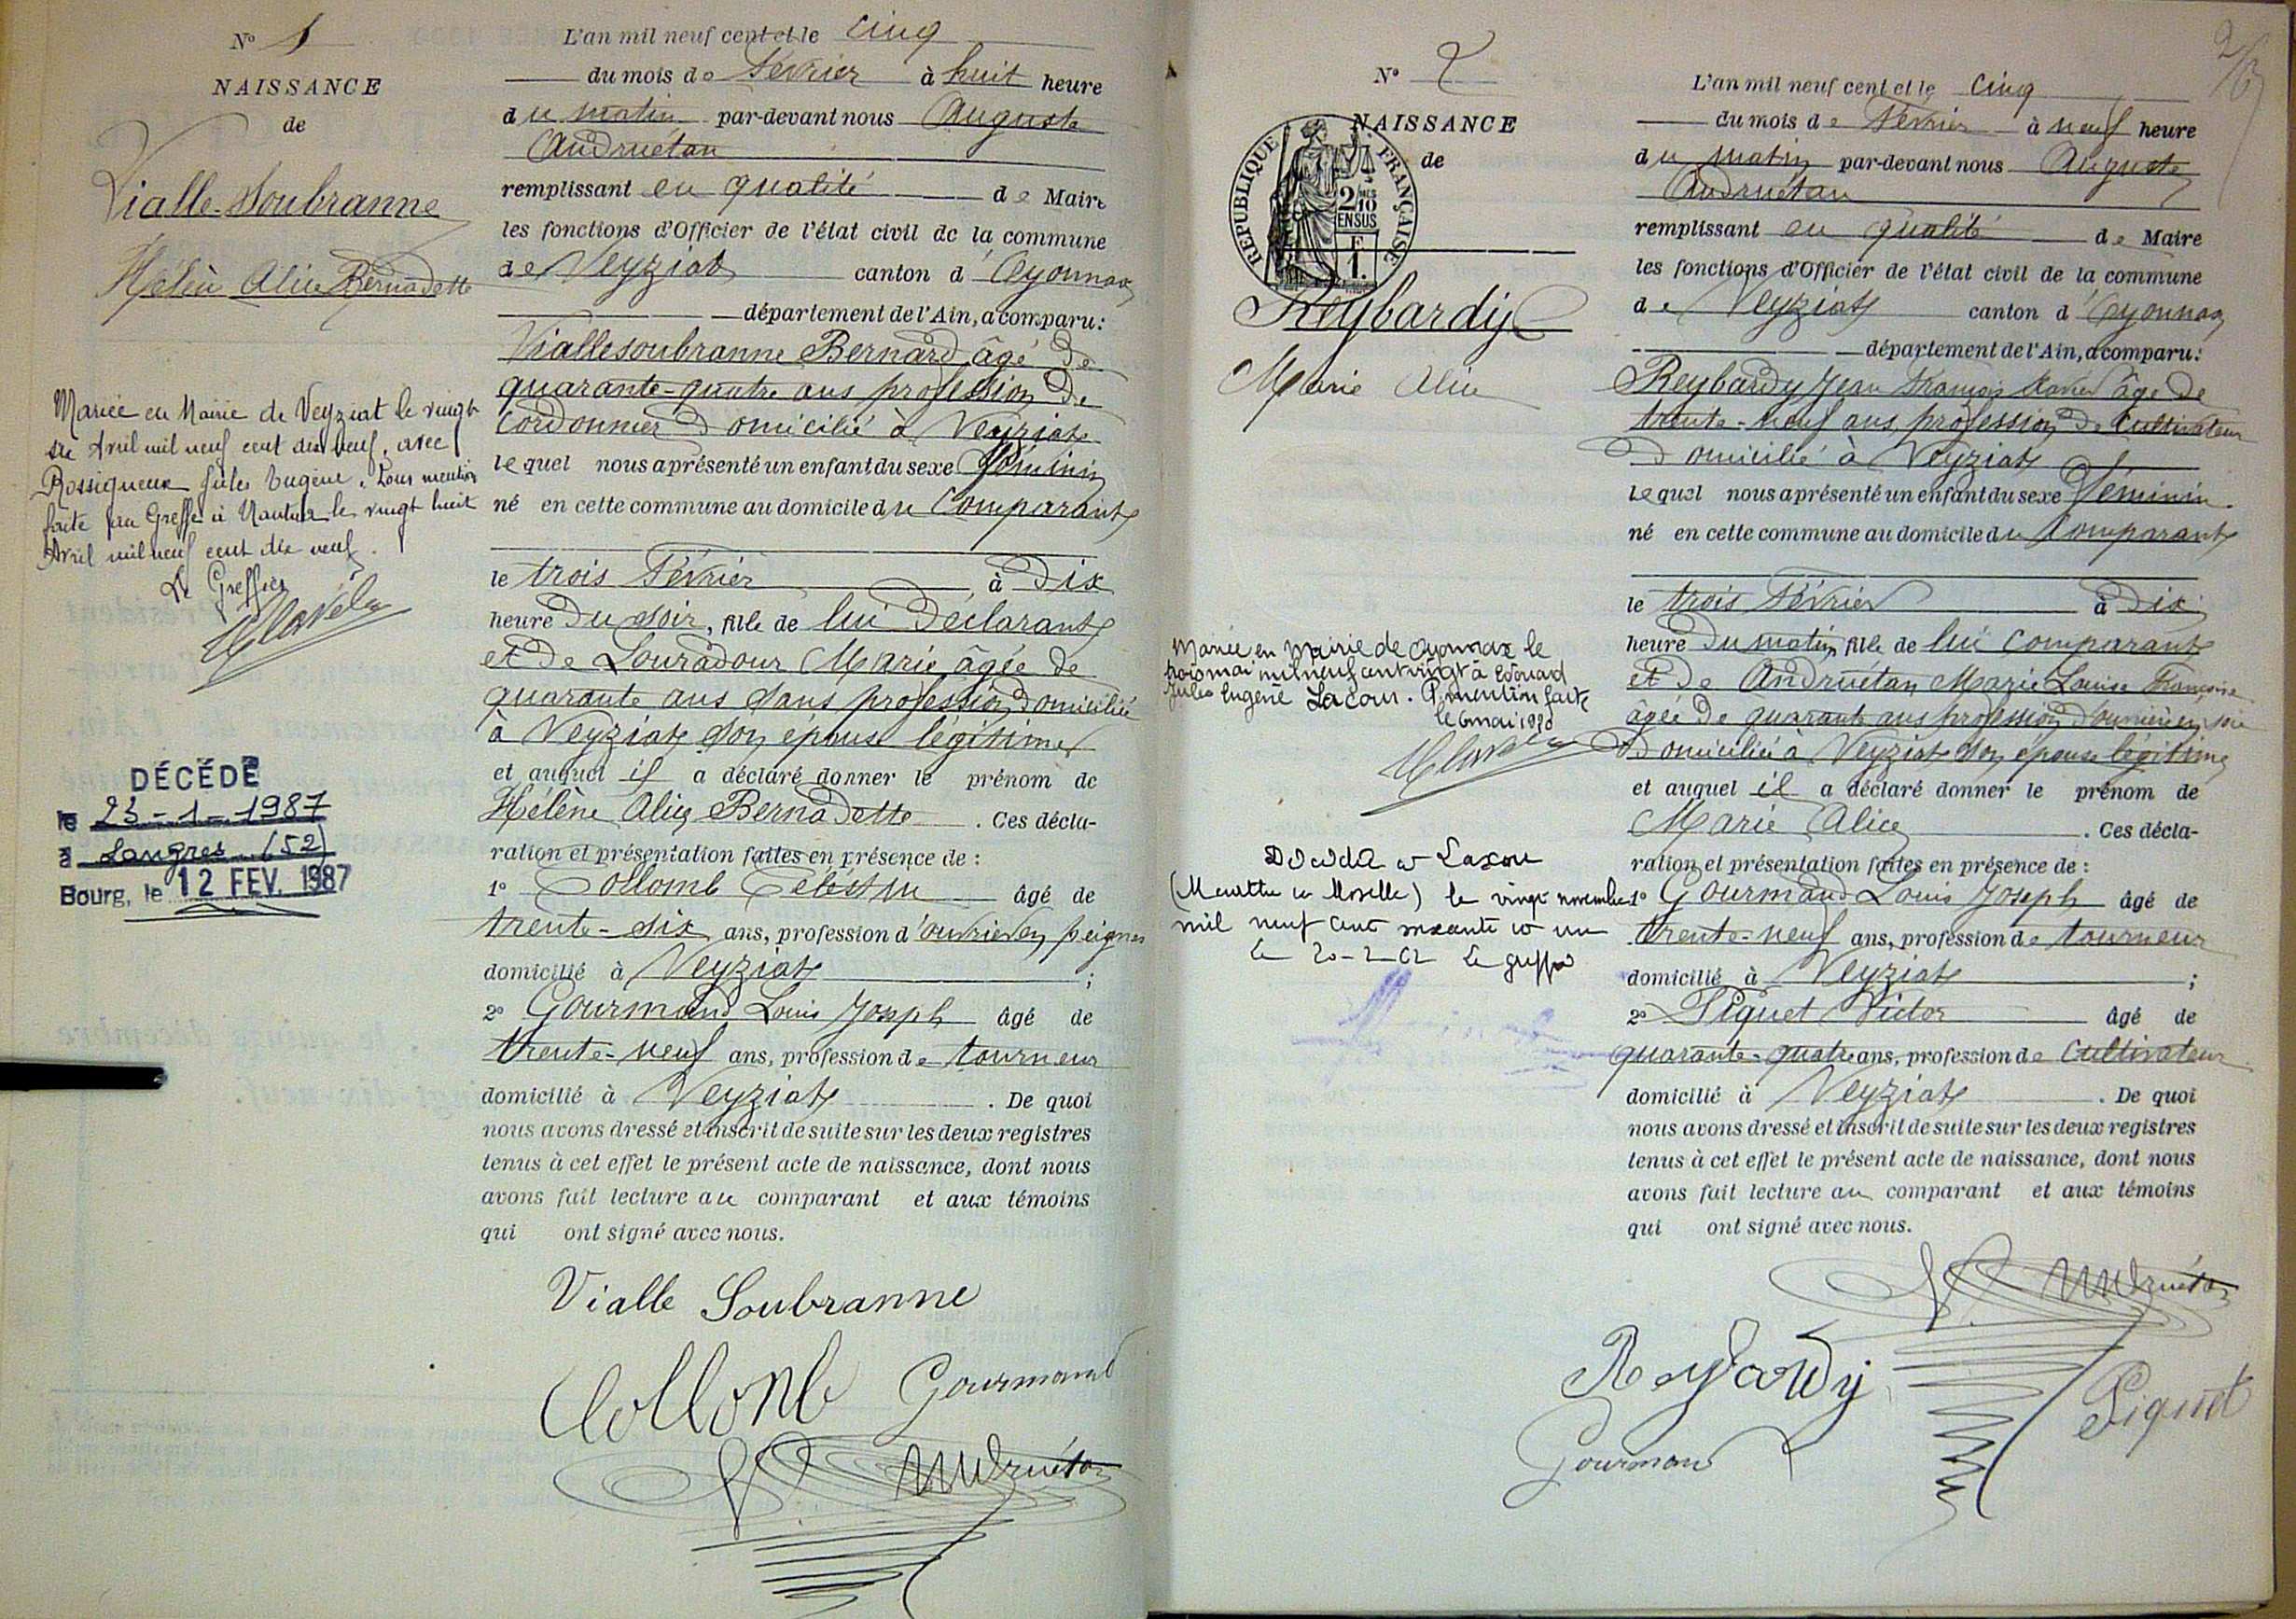 N° 1
NAISSANCE
de
Vialle-Soubranne
Hélène Alice Bernadette
Mariée en Mairie de Veyziat le vingt
six Avril mil neuf cent dix neuf, avec
Rossigneux Jules Eugène. Pour mention
faite au Greffe à Nantua le vingt huit
Avril mil neuf cent dix neuf.
Le Greffier
DÉCÉDÉ
le 23-1-1987
à Langres (52)
Bourg, le 12 FEV. 1987
L'an mil neuf cent et le cinq
du mois de Février à huit heure
du matin par-devant nous Auguste
Andruétan
remplissant en qualité de Maire
les fonctions d'Officier de l'état civil de la commune
de Veyziat canton d'Oyonnax
département de l'Ain, a comparu:
Viallesoubranne Bernard âgé de
quarante-quatre ans profession de
cordonnier Domicilié à Veyziat
lequel nous a présenté un enfant du sexe féminin
né en cette commune au domicile du Comparant
le trois Février à Dix
heure Du soir, fille de lui Déclarant
et de Louradour Marie âgée de
quarante ans sans profession domiciliée
à Veyziat son épouse légitime
et auquel il a déclaré donner le prénom de
Hélène Alice Bernadette. Ces décla-
ration et présentation faites en présence de :
1° Collomb Célestin âgé de
trente-six ans, profession d'ouvrier en peignes
domicilié à Veyziat ;
2° Gourmand Louis Joseph âgé de
trente-neuf ans, profession de tourneur
domicilié à Veyziat . De quoi
nous avons dressé et inscrit de suite sur les deux registres
tenus à cet effet le présent acte de naissance, dont nous
avons fait lecture au comparant et aux témoins
qui ont signé avec nous.
Vialle Soubranne
Collomb Gourmand
Andruétan
2
N° 2
NAISSANCE
de
REPUBLIQUE FRANÇAISE
2/10
EN SUS
F.
1.
Reybardy
Marie Alice
Mariée en Mairie de Oyonnax le
trois mai mil neuf cent vingt à Edouard
Jules Eugène Lacour. P. mention faite
le 6 mai 1920
Décédée à Laxou
(Meurthe et Moselle) le vingt novembre
mil neuf cent soixante et un
Le 20-2-62 Le greffier
L'an mil neuf cent et le cinq
du mois de Février à neuf heure
du matin par-devant nous Auguste
Andruétan
remplissant en qualité de Maire
les fonctions d'Officier de l'état civil de la commune
de Veyziat canton d'Oyonnax
département de l'Ain, a comparu:
Reybardy Jean François Xavier âgé de
trente-neuf ans, profession de Cultivateur
Domicilié à Veyziat
lequel nous a présenté un enfant du sexe féminin
né en cette commune au domicile du Comparant
le trois Février à Dix
heure Du matin, fille de lui comparant
et de Andruétan Marie Louise Françoise
âgée de quarante ans profession d'ouvrière en soie
Domiciliée à Veyziat son épouse légitime
et auquel il a déclaré donner le prénom de
Marie Alice . Ces décla-
ration et présentation faites en présence de :
1° Gourmand Louis Joseph âgé de
trente-neuf ans, profession de tourneur
domicilié à Veyziat ;
2° Piquet Victor âgé de
quarante-quatre ans, profession de Cultivateur
domicilié à Veyziat . De quoi
nous avons dressé et inscrit de suite sur les deux registres
tenus à cet effet le présent acte de naissance, dont nous
avons fait lecture au comparant et aux témoins
qui ont signé avec nous.
Andruétan
Reybardy Piquet
Gourmand